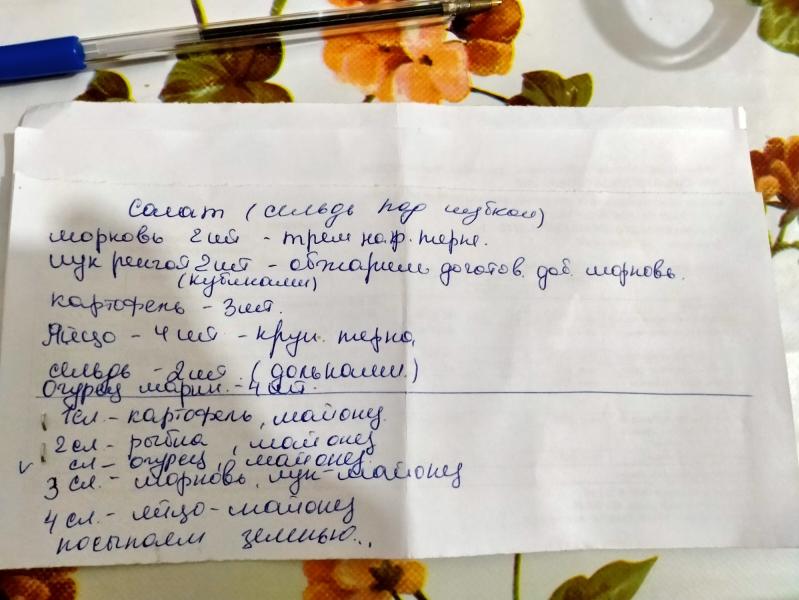 Салат (сельдь под шубкой)
морковь 2 шт - трем на ф. терке.
лук репчат 2 шт - обжарить до готов. доб. морковь.
(кубиками)
картофель - 3 шт.
Яйцо - 4 шт - круп. терка
сельдь - 2 шт. (дольками)
Огурец марин. - 4 шт.
1 сл. - картофель, майонез.
2 сл. - рыбка, майонез
v сл. - огурец, майонез
3 сл. - морковь, лук - майонез
4 сл. - яйцо - майонез
посыпаем зеленью...